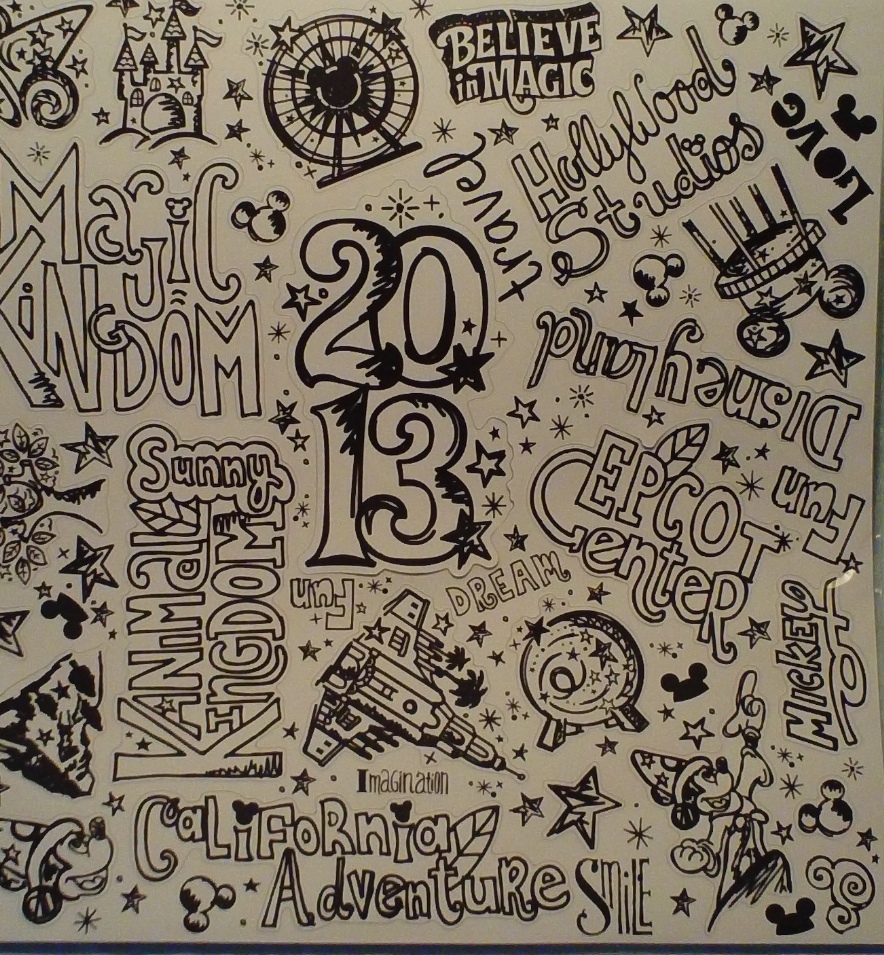 BELIEVE
in MAGIC
Hollywood
Studios
LOVE
travel
Magic
KiNGDOM
20
13
Disneyland
EPCOT
Center
Fun
Sunny
Animal
KiNGDOM
Fun
DREAM
MICKEY
Imagination
CaLiFoRnia
AdventuRe
SMiLE